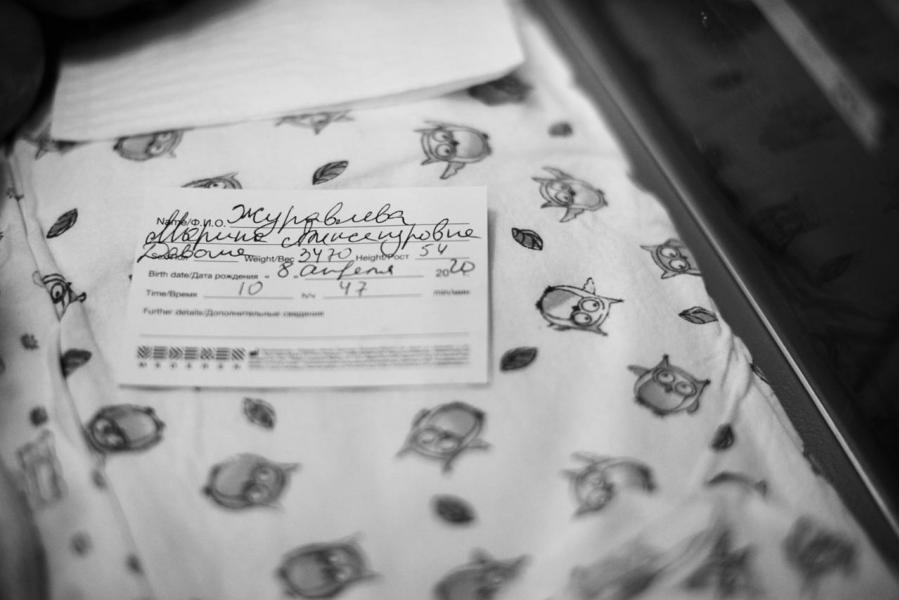 Name/Ф.И.О. Журавлева
Марина Александровна
Девочка Weight/Вес 3470 Height/Рост 54
Birth date/Дата рождения « 8. апреля 2020
Time/Время 10 h/ч 47 min/мин
Further details/Дополнительные сведения